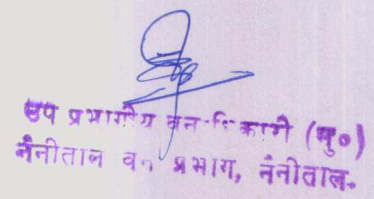 उप प्रभागीय वनाधिकारी (मु०)
नैनीताल वन प्रभाग, नैनीताल॰